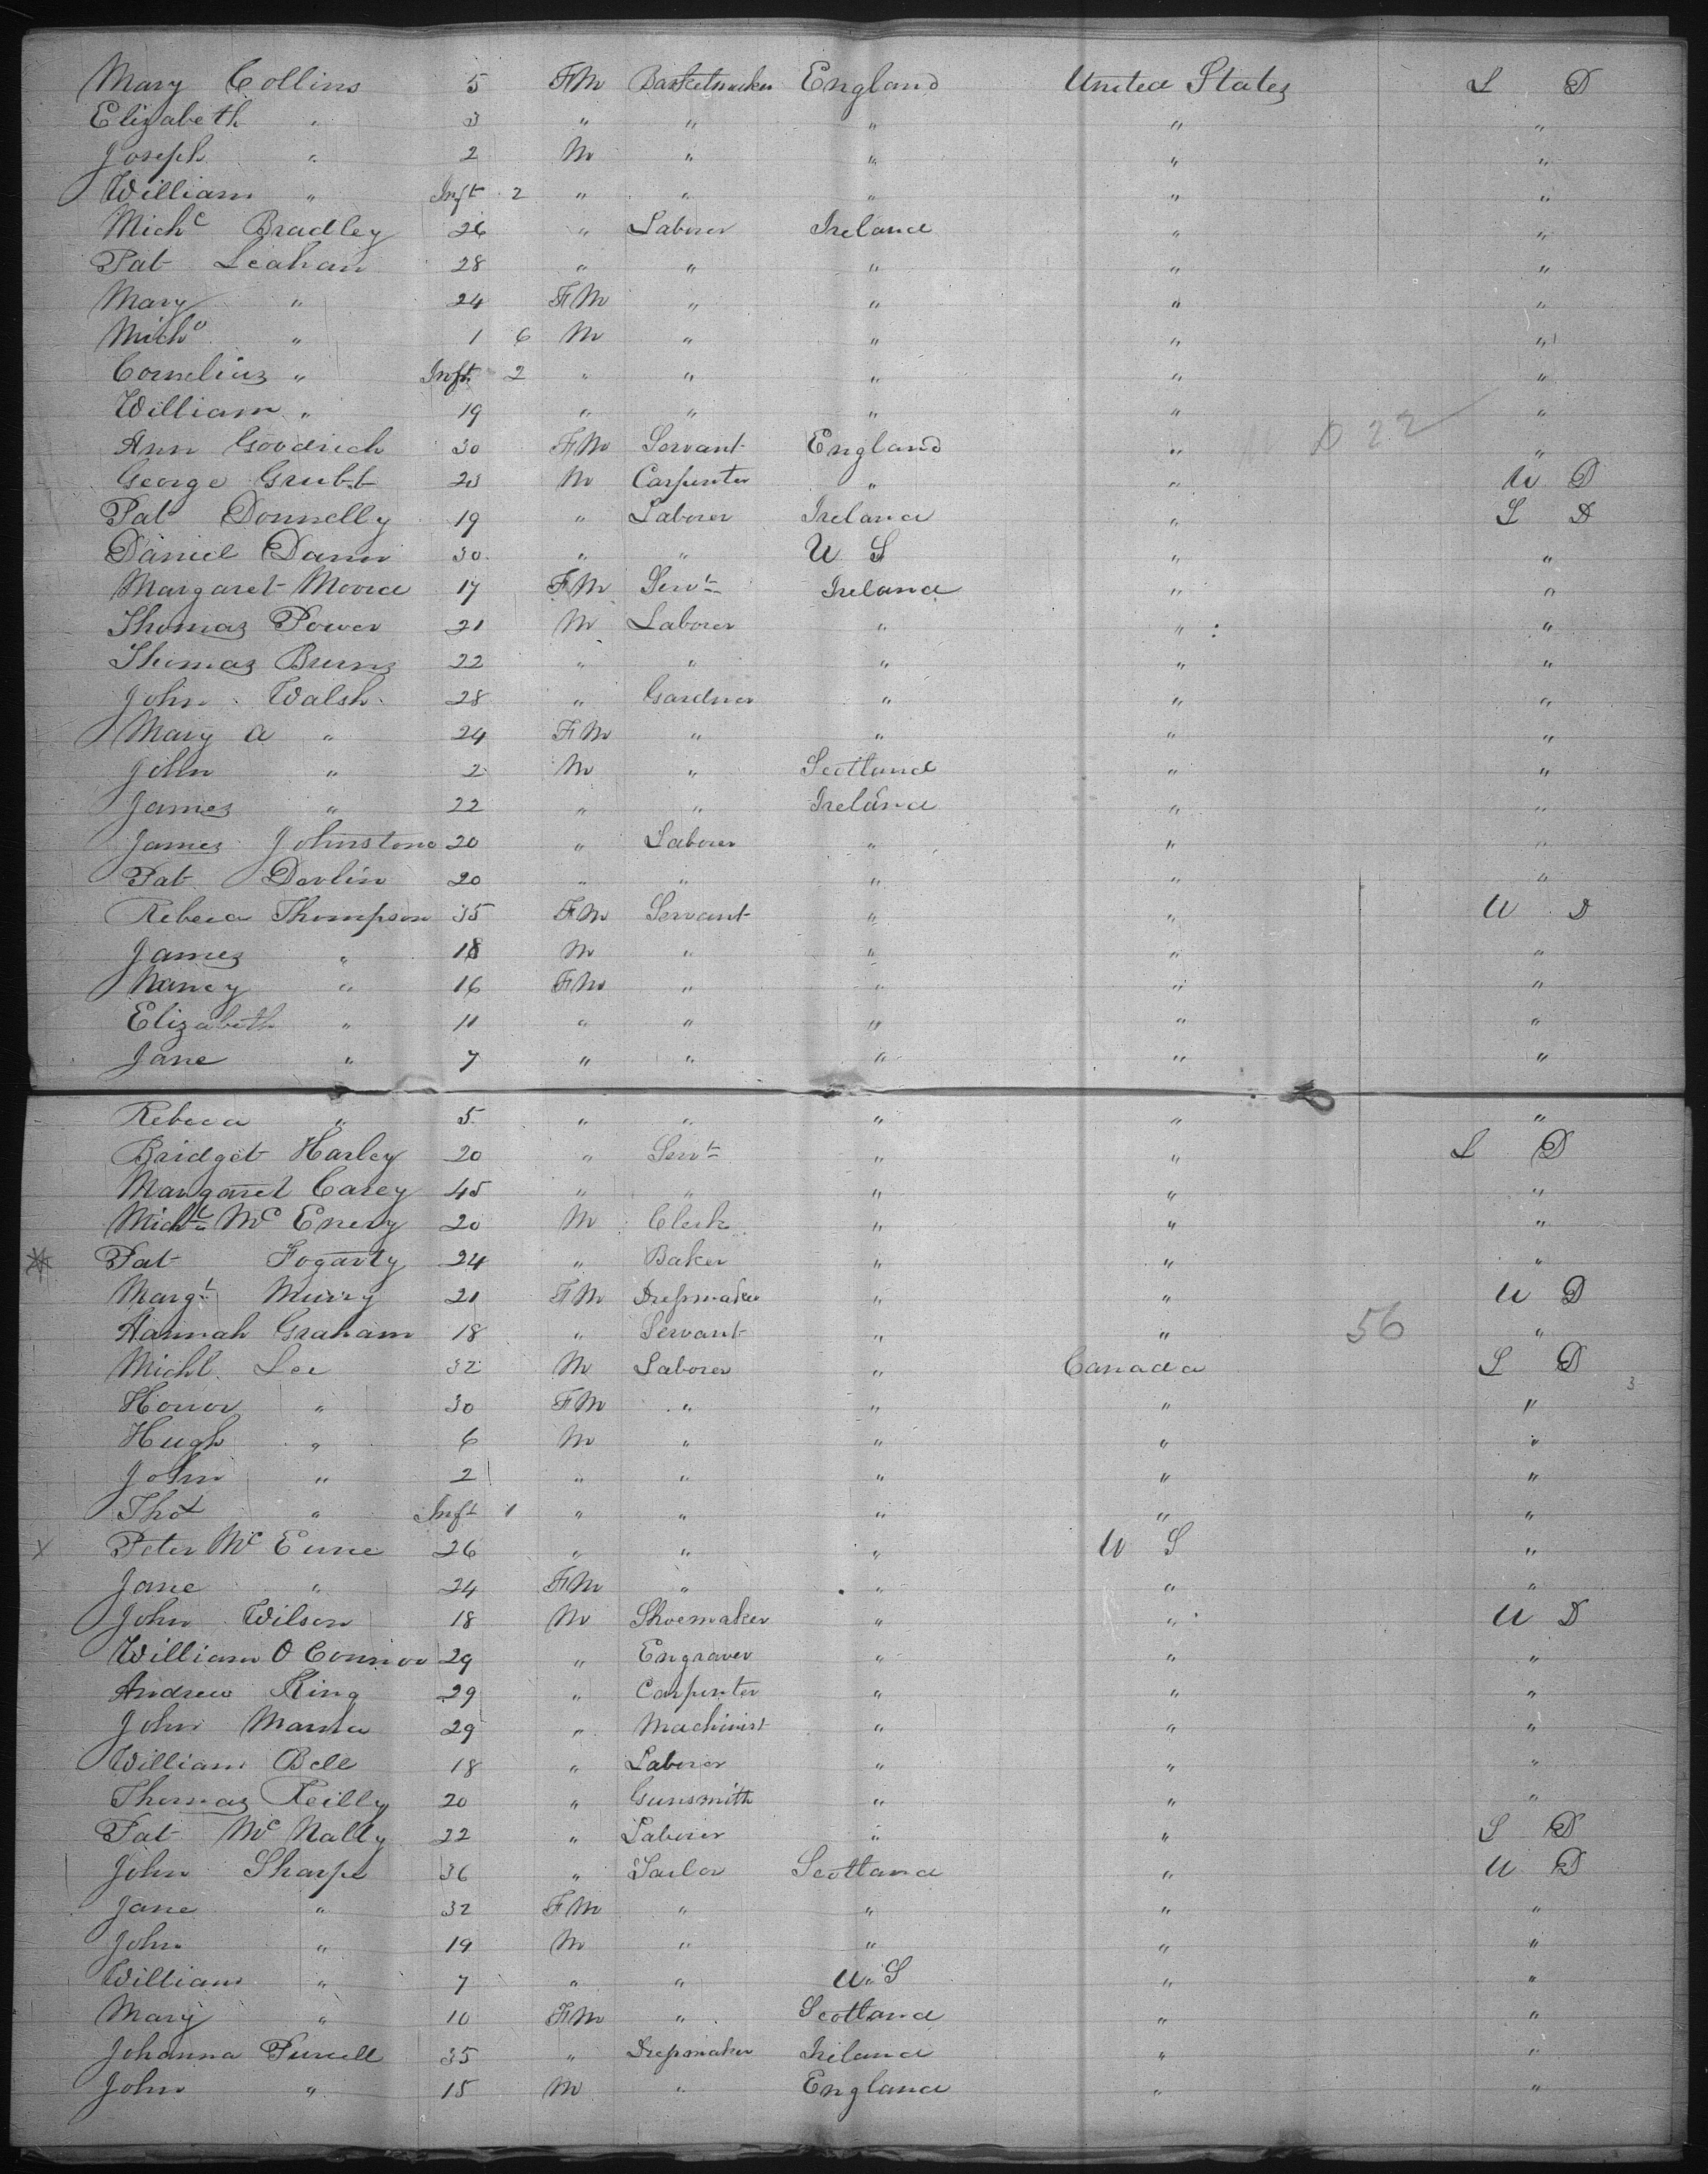 Mary Collins 5 FM Basketmaker England United States L D
Elizabeth " 3 " " " " "
Joseph " 2 M " " " "
William " Inft 2 " " " " "
Michl Bradley 26 " Laborer Ireland " "
Pat Leahan 28 " " " " "
Mary " 24 FM " " " "
Michl " 1 6 M " " " "
Cornelius " Inft 2 " " " " "
William " 19 " " " " "
Ann Goodrich 30 FM Servant England " 22 "
George Grubb 23 M Carpenter " " U D
Pat Donnelly 19 " Laborer Ireland " L D
Daniel Dann 30 " " U S " "
Margaret Moore 17 FM Servt Ireland " "
Thomas Power 21 M Laborer " " "
Thomas Burns 22 " " " " "
John Walsh 28 " Gardner " " "
Mary A " 24 FM " " " "
John " 2 M " Scotland " "
James " 22 " " Ireland " "
James Johnstone 20 " Laborer " " "
Pat Devlin 20 " " " " "
Rebeca Thompson 35 FM Servant " " U D
James " 18 M " " " "
Nancy " 16 FM " " " "
Elizabeth " 11 " " " " "
Jane " 7 " " " " "
Rebeca " 5 " " " " "
Bridget Harley 20 " Servt " " L D
Margaret Carey 45 " " " " "
Michl McEnery 20 M Clerk " " "
Pat Fogarty 24 " Baker " " "
Margt Murry 21 FM Dressmaker " " U D
Hannah Graham 18 " Servant " " 56 "
Michl Lee 32 M Laborer " Canada L D 3
Honor " 30 FM " " " "
Hugh " 6 M " " " "
John " 2 " " " " "
Thos " Inft 1 " " " " "
Peter McEune 26 " " " U S "
Jane " 24 FM " " " "
John Wilson 18 M Shoemaker " " U D
William O Connor 29 " Engraver " " "
Andrew King 29 " Carpenter " " "
John 29 " Machinist " " "
William Bell 18 " Laborer " " "
Thomas Reilly 20 " Gunsmith " " "
Pat McNally 22 " Laborer " " L D
John Sharpe 36 " Tailor Scotland " U D
Jane " 32 FM " " " "
John " 19 M " " " "
William " 7 " " U S " "
Mary " 10 FM " Scotland " "
Johanna Purcell 35 " Dressmaker Ireland " "
John " 15 M " England " "